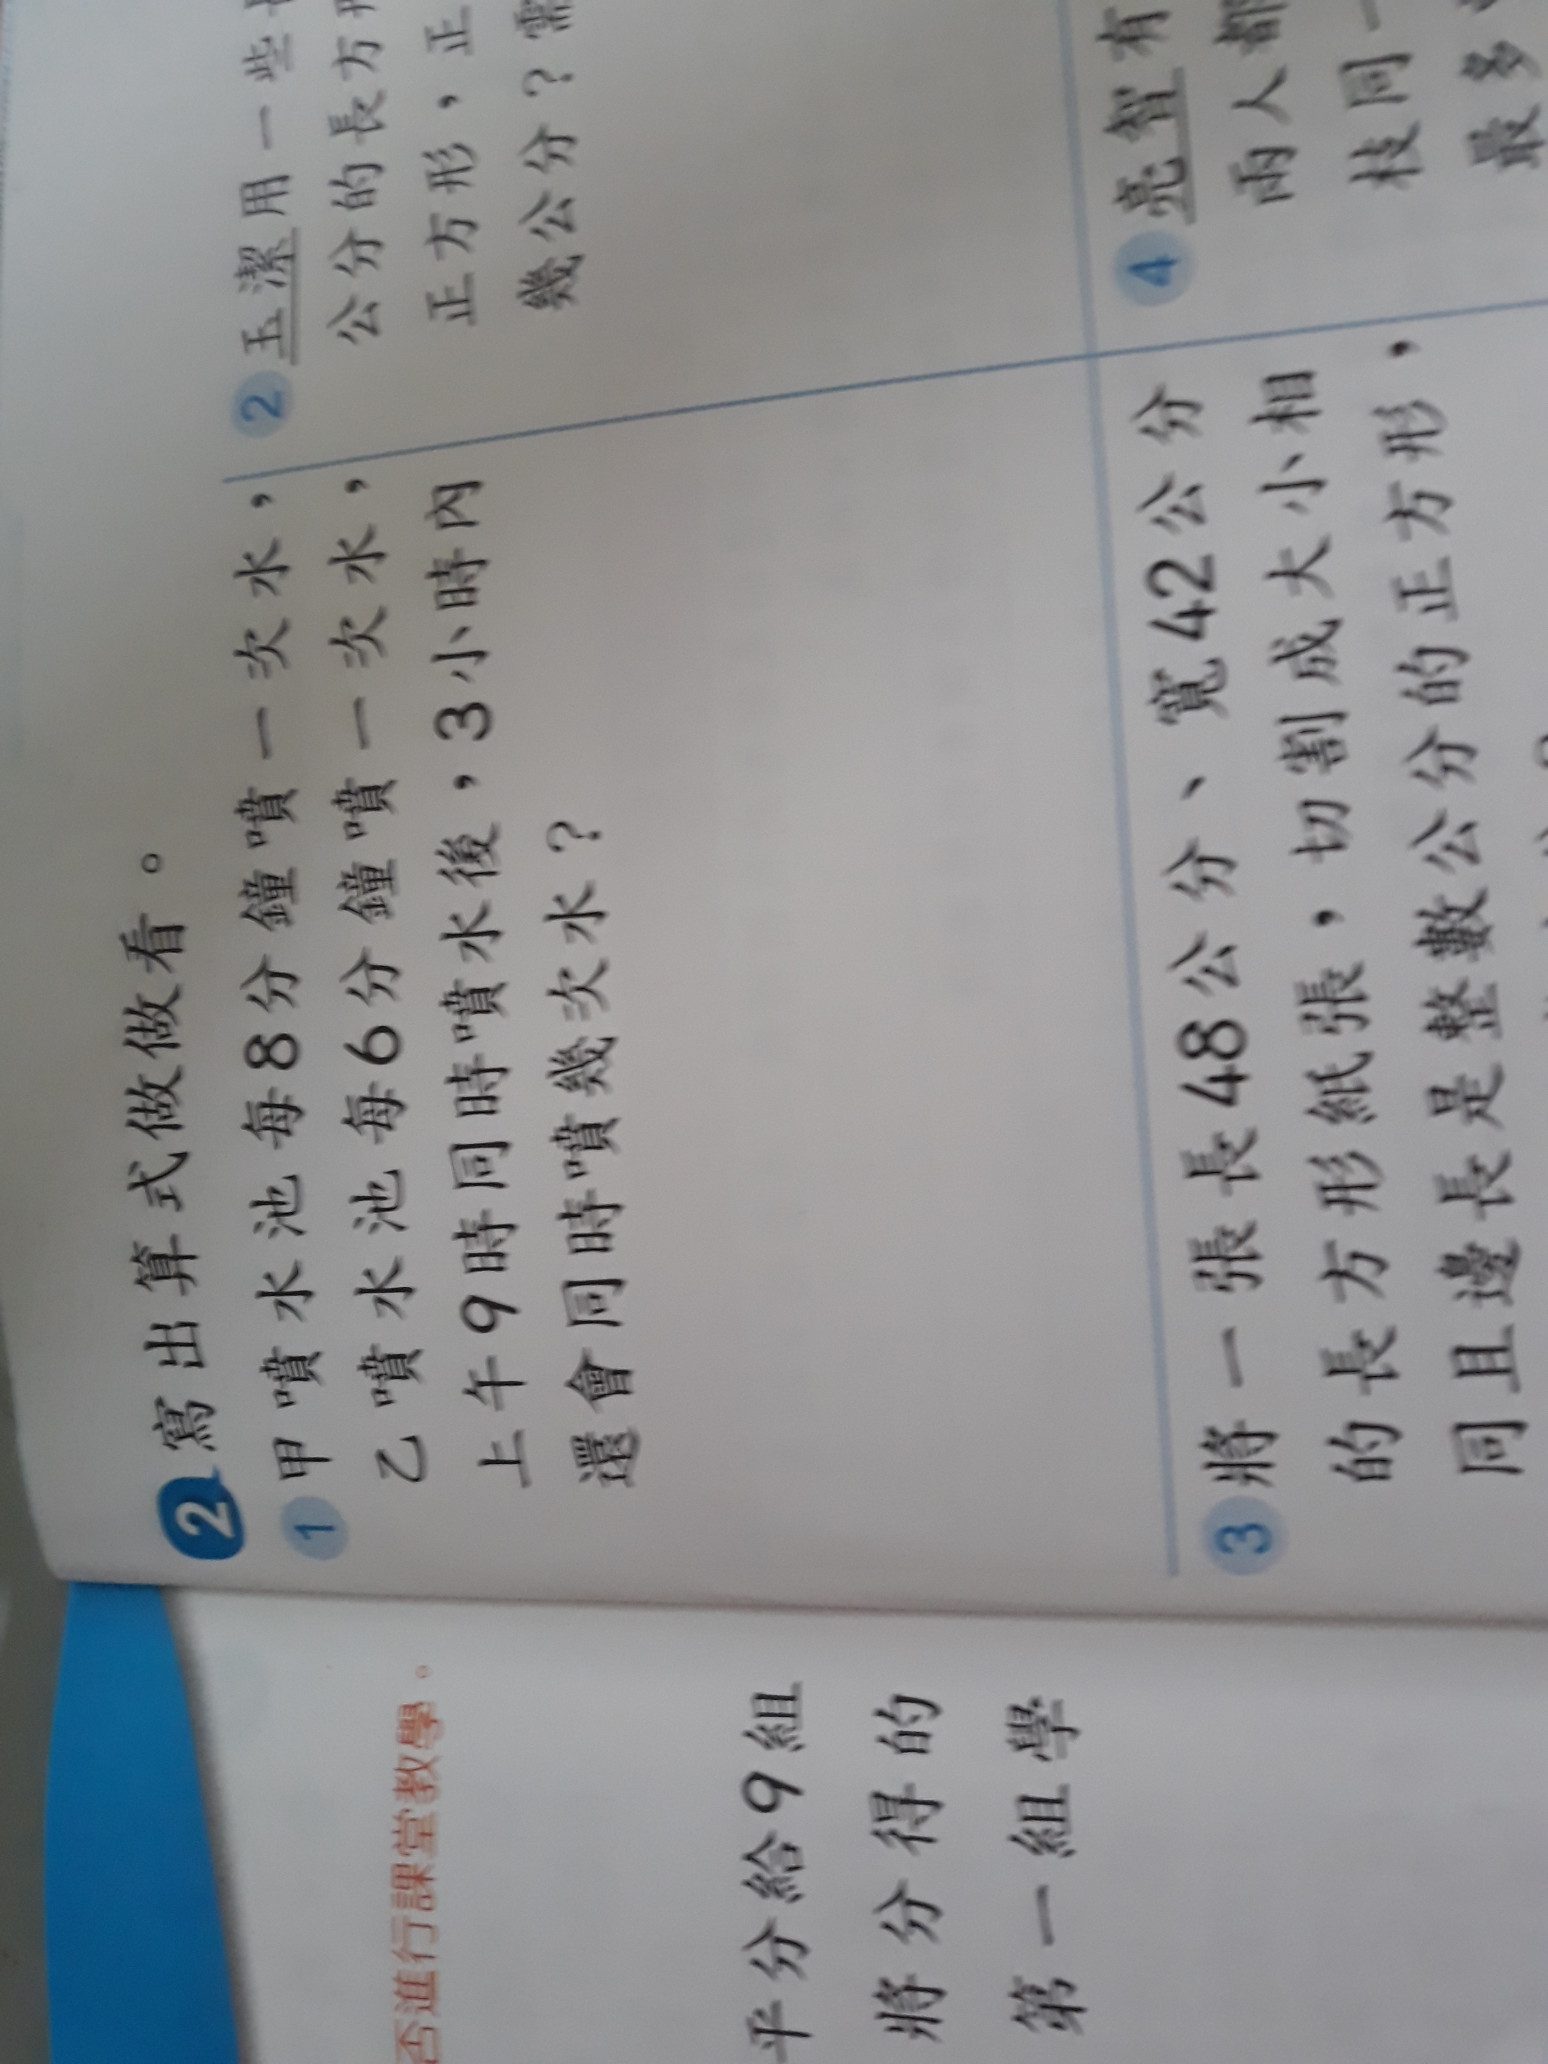 2 寫出算式做做看。
1 甲噴水池每8分鐘噴一次水，
乙噴水池每6分鐘噴一次水，
上午9時同時噴水後，3小時內
還會同時噴幾次水？
2 玉潔用一些
公分的長方形
正方形，正
幾公分？需
3 將一張長48公分、寬42公分
的長方形紙張，切割成大小相
同且邊長是整數公分的正方形，
4 亮智有
兩人都
枝同一
最多
否進行課堂教學。
平分給9組
將分得的
第一組學